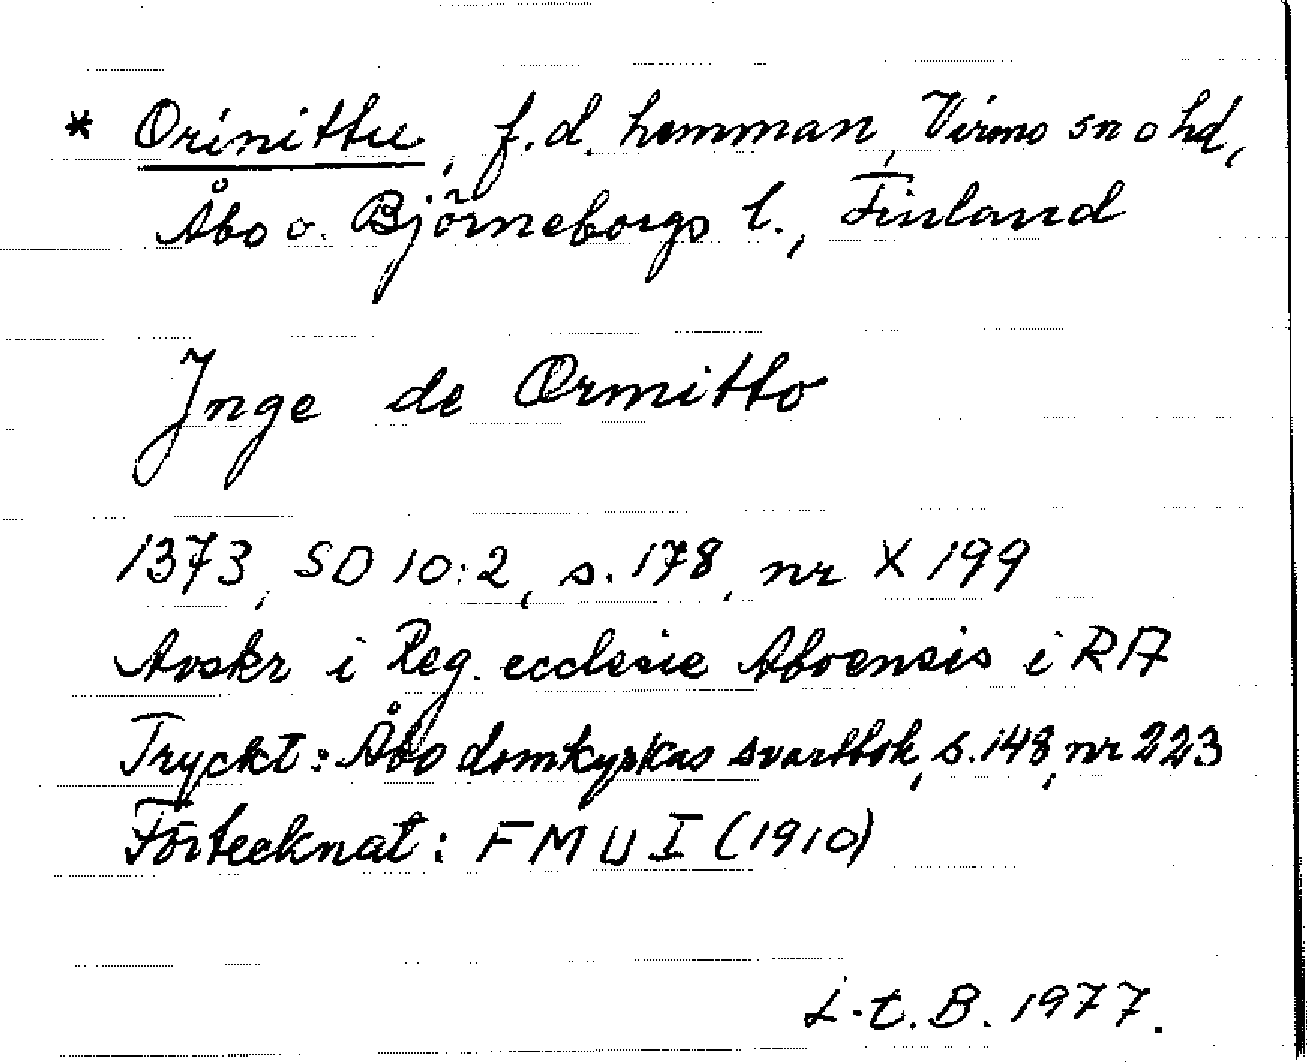 * Orinittu, f.d. hemman, Virmo sn o hd,
Åbo o. Björneborgs l., Finland
Jnge de Ormitto
1373, SD 10:2, s. 178, nr X 199
Avskr i Reg. ecclesie Aboensis i RA
Tryckt: Åbo domkyrkas svartbok, s. 148, nr 223
Förtecknat: FMU I (1910)
L-t. B. 1977.